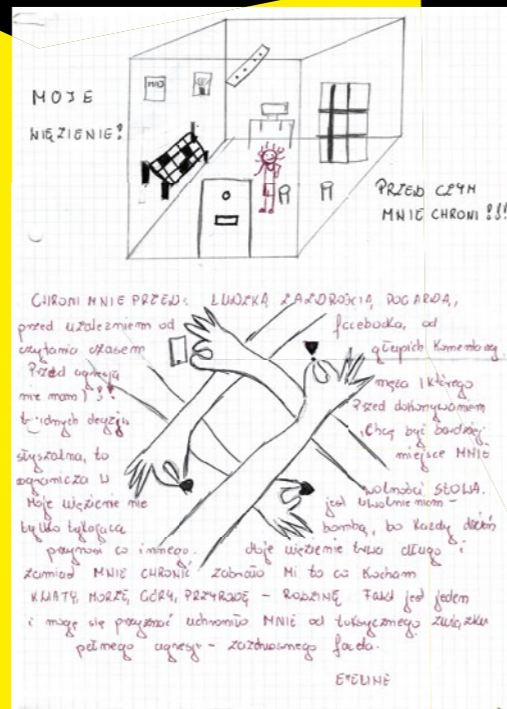 MOJE
WIĘZIENIE?
PRZED CZYM
MNIE CHRONI !!!
CHRONI MNIE PRZED: LUDZKĄ ZAZDROŚCIĄ, POGARDĄ,
przed uzależnieniem od facebooka, od
czytania czasem głupich komentarzy
Przed agresją męża (którego
nie mam)!? Przed dokonywaniem
trudnych decyzji. Chcę być bardziej
słyszalna, to miejsce MNIE
ogranicza w wolności SŁOWA.
Moje więzienie nie jest uwolnieniem -
tylko tykającą bombą, bo każdy dzień
przynosi co innego. Moje więzienie trwa długo i
zamiast MNIE CHRONIĆ zabrało Mi to co Kocham
KWIATY, MORZE, GÓRY, PRZYRODĘ - RODZINĘ. Fakt jest jeden
i mogę się przyznać uchroniło MNIE od toksycznego związku
pełnego agresji - zazdrosnego faceta.
EVELINE